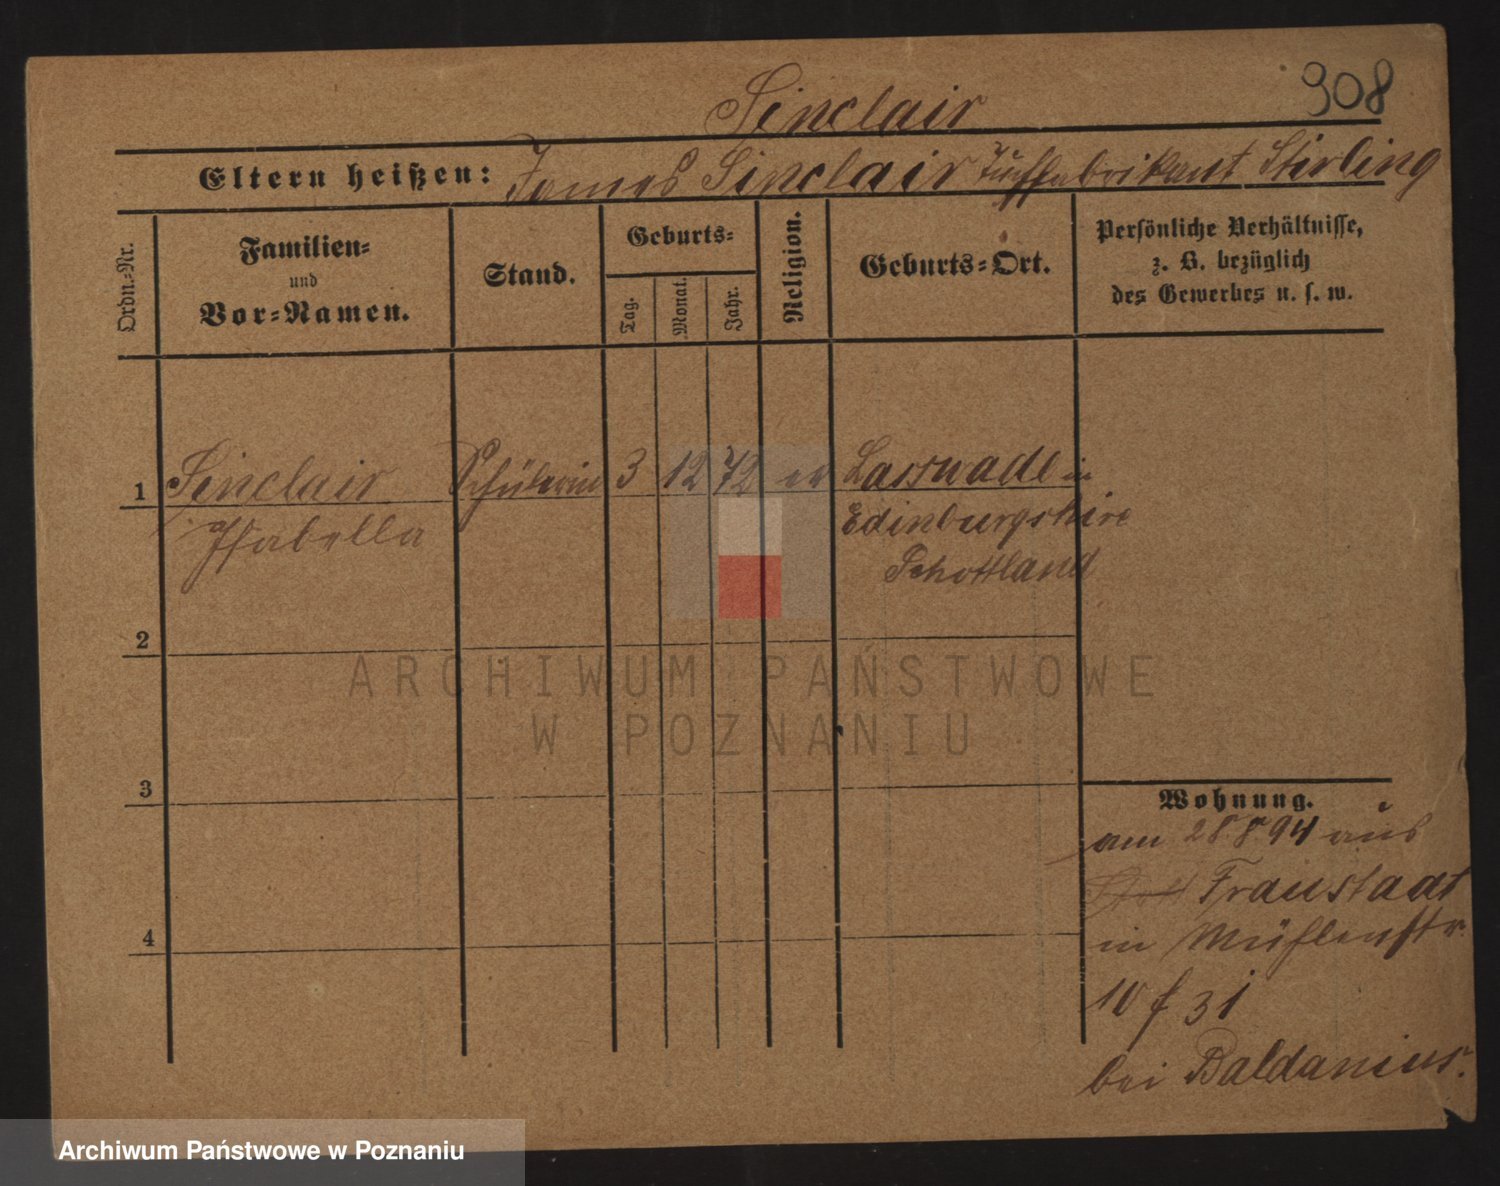 308
Sinclair
Eltern heißen: James Sinclair Tuchfabrikant Stirling
Ordn.-Nr.
Familien-
und
Vor-Namen.
Stand.
Geburts-
Tag.
Monat.
Jahr.
Religion.
Geburts-Ort.
Persönliche Verhältnisse,
z. B. bezüglich
des Gewerbes u. s. w.
1 Sinclair Schülerin 3 12 72 ev Lasswade in
Isabella Edinburgshire
Schottland
2
3
4
Wohnung.
am 28.8.94 aus
Fraustadt
in Mühlenstr.
10 f 31
bei Baldanius.
ARCHIWUM PAŃSTWOWE
W POZNANIU
Archiwum Państwowe w Poznaniu